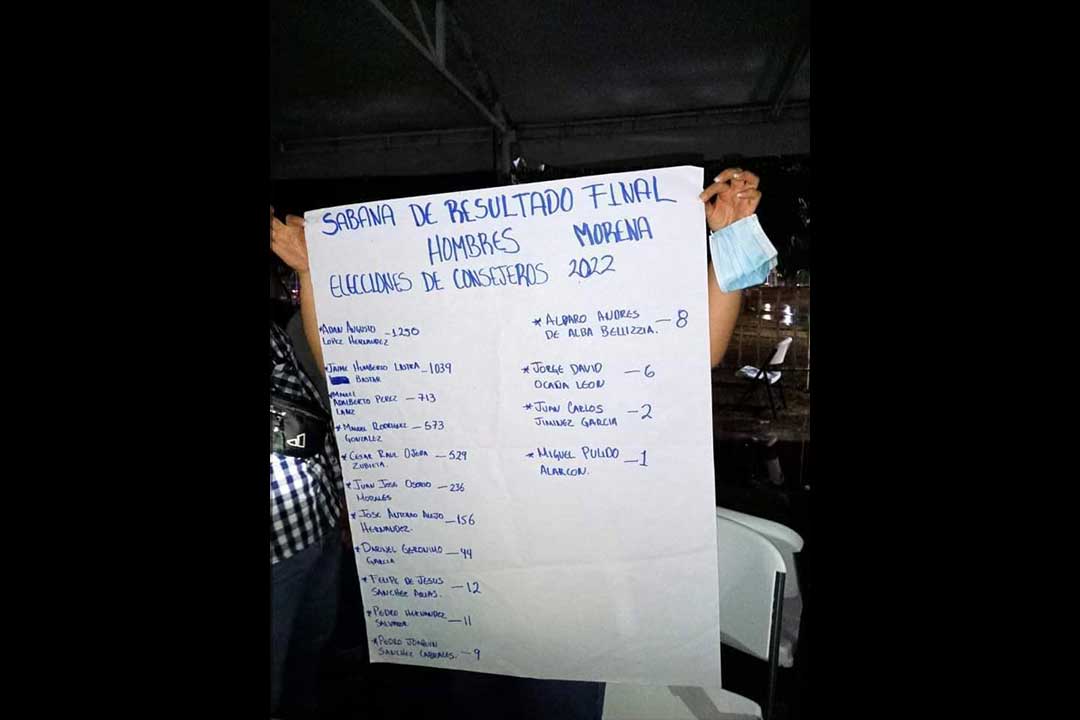 SABANA DE RESULTADO FINAL
HOMBRES MORENA
ELECCIONES DE CONSEJEROS 2022
*ADAN AUGUSTO - 1290
LOPEZ HERNANDEZ
*JAIME HUMBERTO LASTRA - 1039
BASTAR
*
ADALBERTO PEREZ - 713
LANZ
*MANUEL RODRIGUEZ - 573
GONZALEZ
*CESAR RAUL OJEDA - 529
ZUBIETA.
*JUAN JOSE OSORIO - 236
MORALES
*JOSE ANTONIO ALEJO - 156
HERNANDEZ.
*DARINEL GERONIMO - 44
GARCIA
*FELIPE DE JESUS - 12
SANCHEZ
*PEDRO HERNANDEZ - 11
SALVADOR
*PEDRO JOAQUIN
SANCHEZ CABRALES. - 9
*ALBARO ANDRES - 8
DE ALBA BELLIZZIA.
*JORGE DAVID - 6
OCAÑA LEON
*JUAN CARLOS - 2
JIMINEZ GARCIA
*MIGUEL PULIDO - 1
ALARCON.